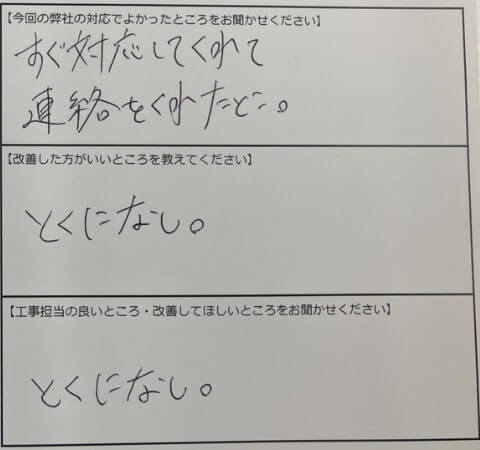 【今回の弊社の対応でよかったところをお聞かせください】
すぐ対応してくれて
連絡をくれたとこ。
【改善した方がいいところを教えてください】
とくになし。
【工事担当の良いところ・改善してほしいところをお聞かせください】
とくになし。